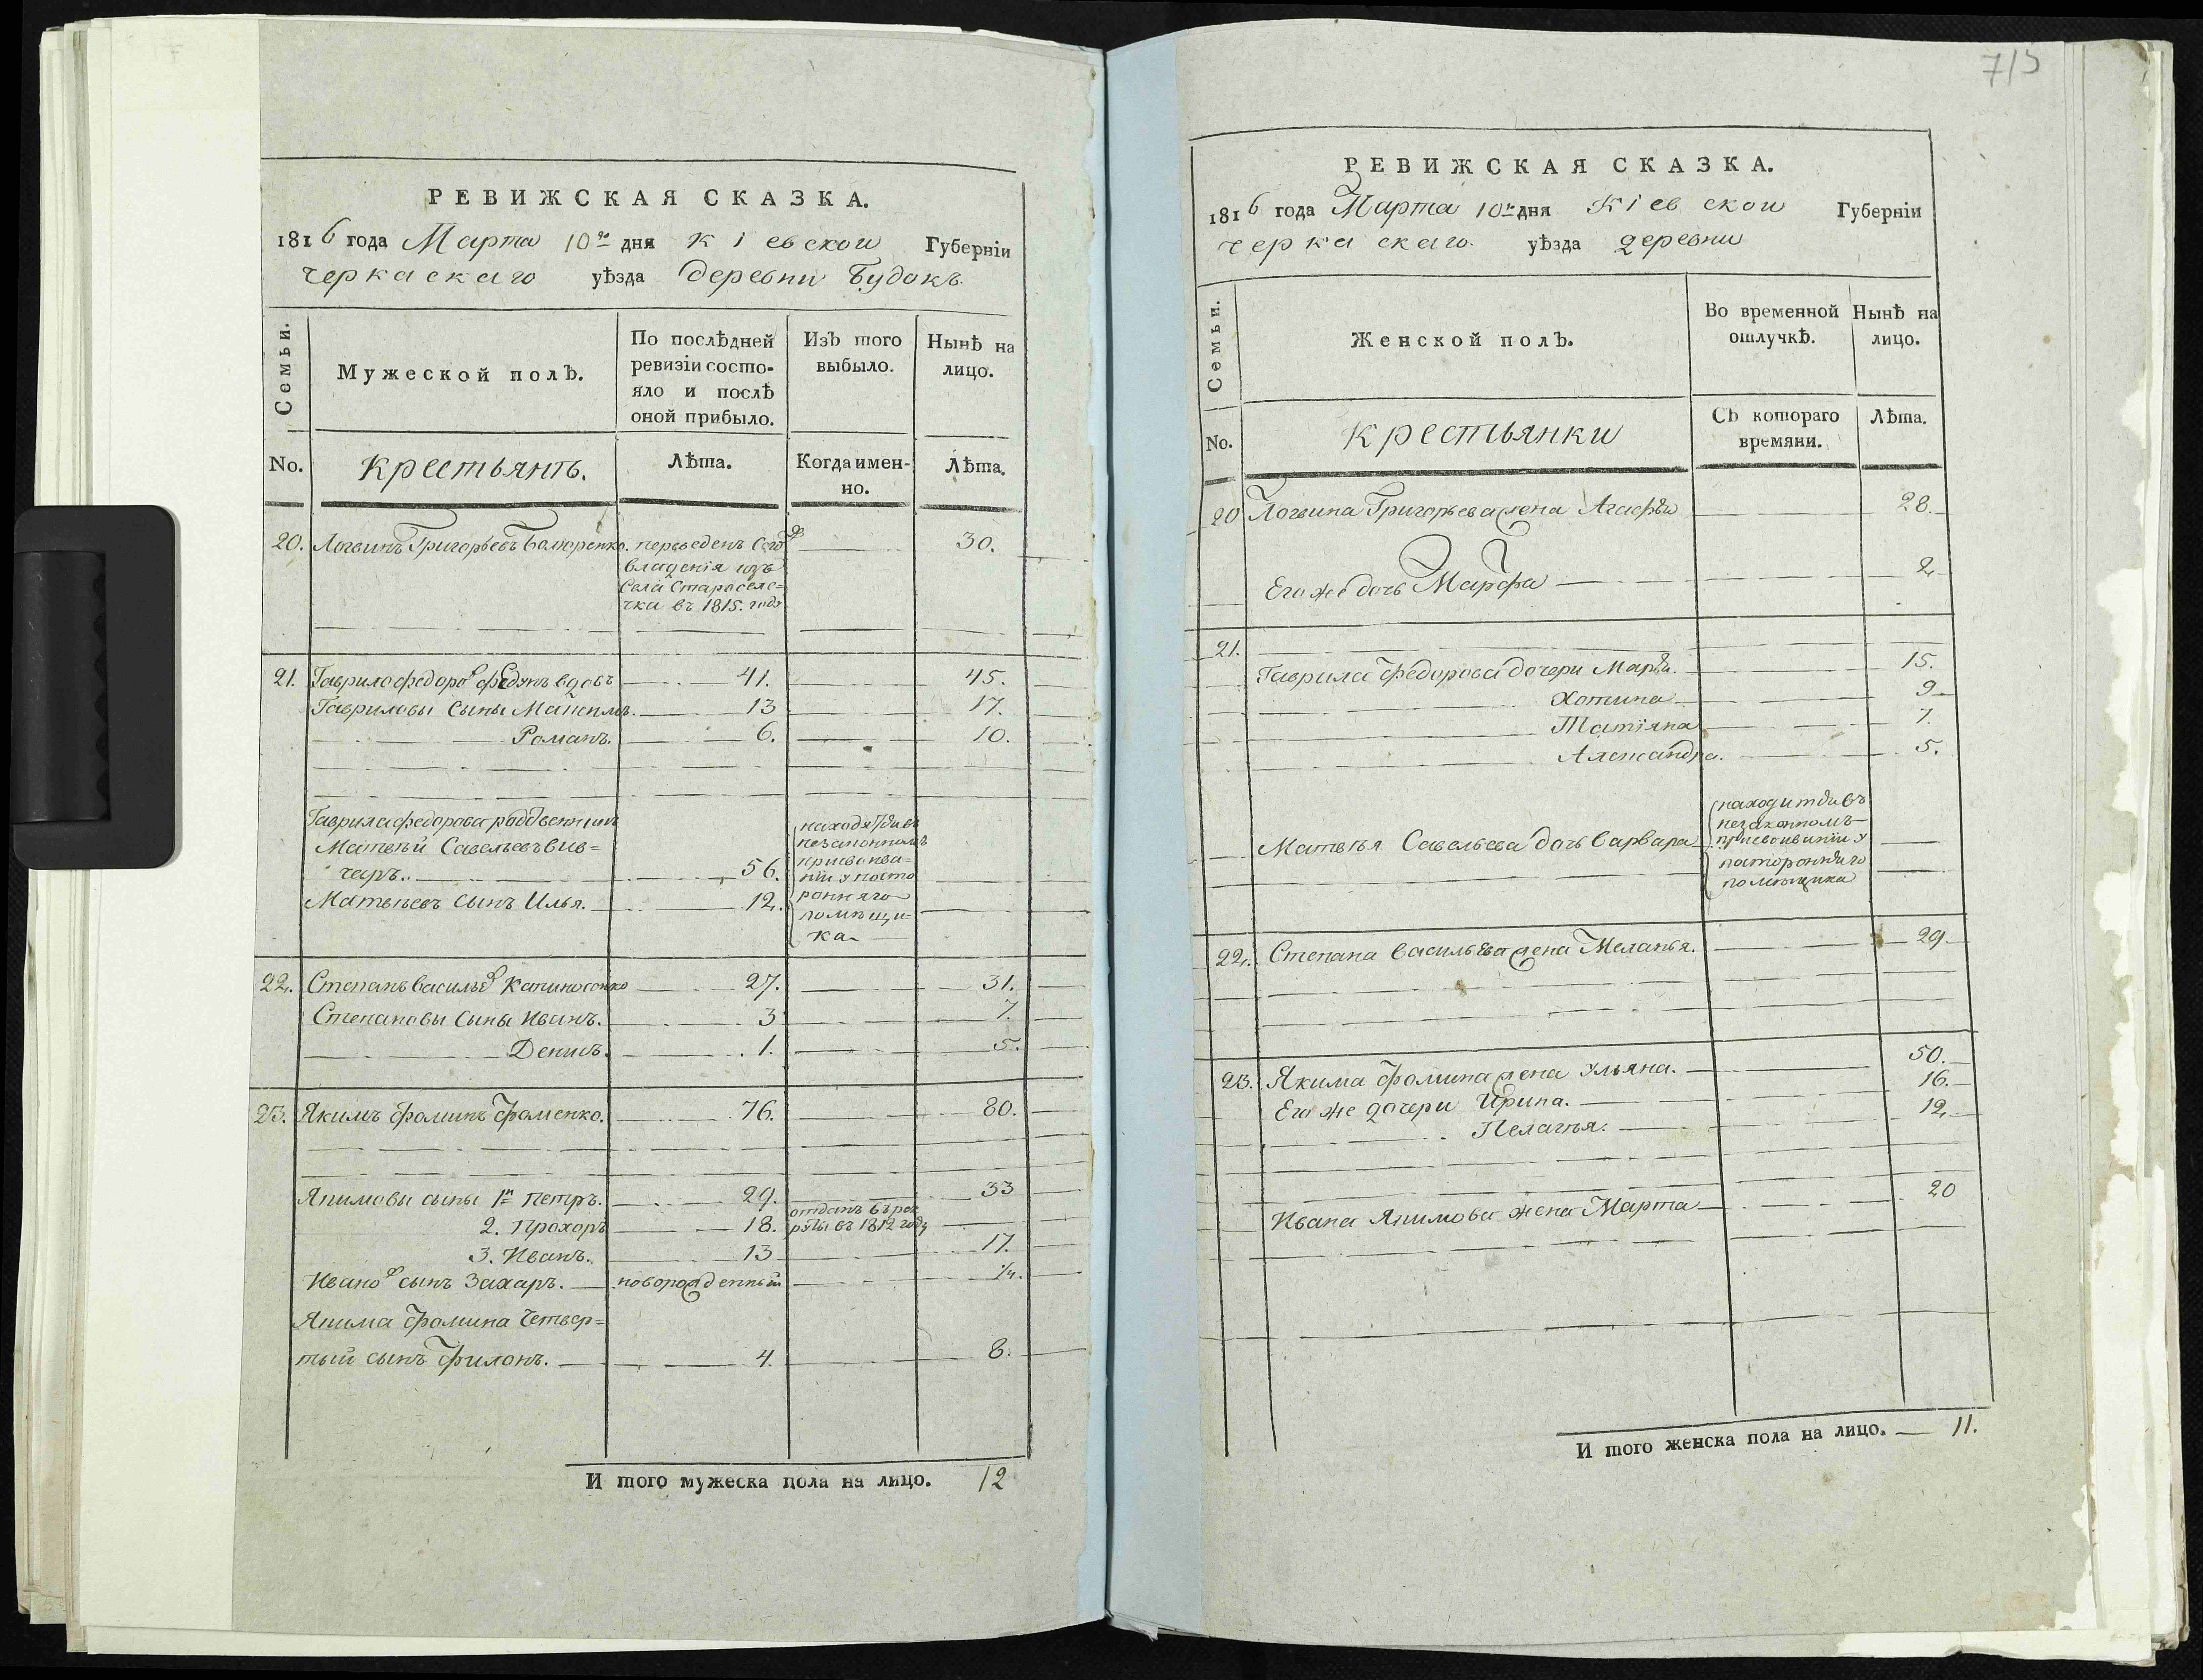 РЕВИЖСКАЯ СКАЗКА.
1816 года Марта 10го дня Кіевской Губерніи
Черкаскаго уѣзда деревни Будокъ.
Семьи.
Мужеской полъ.
По послѣдней ревизіи состо-
яло и послѣ
оной прибыло.
Изъ того
выбыло.
Нынѣ на
лицо.
No.
Крестьянъ.
Лѣта.
Когда имен-
но.
Лѣта.
20. Логвинъ Григорьевъ переведенъ 30.
владенія изъ
Села Староселе=
чка въ 1815. году
21. Гаврило Федоро вдовъ 41. 45.
Гавриловы Сыны 13 17.
Романъ. 6. 10.
Гаврила Федорова
Матвѣй Савельевъ Вив=
чаръ. 56.
Матвѣевъ Сынъ Илья. 12.
находятся въ
незаконномъ
присвоива=
ніи у посто
ронняго
помѣщи=
ка
22. Степанъ Василье 27. 31.
Степановы Сыны Иванъ. 3 7.
Денисъ. 1. 5.
23. Якимъ Фоминъ Фоменко. 76. 80.
Якимовы сыны 1й Петръ. 29. 33
2. Прохоръ 18. отданъ въ рек
руты въ 1812 году
3. Иванъ. 13 17.
Ивано сынъ Захаръ. новорожденный 1/4.
Якима Фомина Четвер=
тый сынъ Филонъ. 4. 8.
И того мужеска пола на лицо. 12
715
РЕВИЖСКАЯ СКАЗКА.
1816 года Марта 10го дня Кіевской Губерніи
Черкаскаго уѣзда деревни
Семьи.
Женской полъ.
Во временной
отлучкѣ.
Нынѣ на
лицо.
No.
Крестьянки
Съ котораго
времяни.
Лѣта.
20 Логвина Григорьева жена Агафья 28.
Его же дочь Марфа 2
21.
Гаврила Федорова дочери Марья. 15.
Хотина 9
Татіяна 7.
Александра. 5.
Матвѣя Савельева дочь Варвара
находится въ
незаконномъ
присвоиваніи у
посторонняго
помѣщика
22. Степана Васильева жена Меланья. 29
23. Якима Фомина жена Ульяна. 50.
Его же дочери Ирина. 16.
Пелагѣя. 12.
Ивана Якимова жена Марта 20
И того женска пола на лицо. 11.